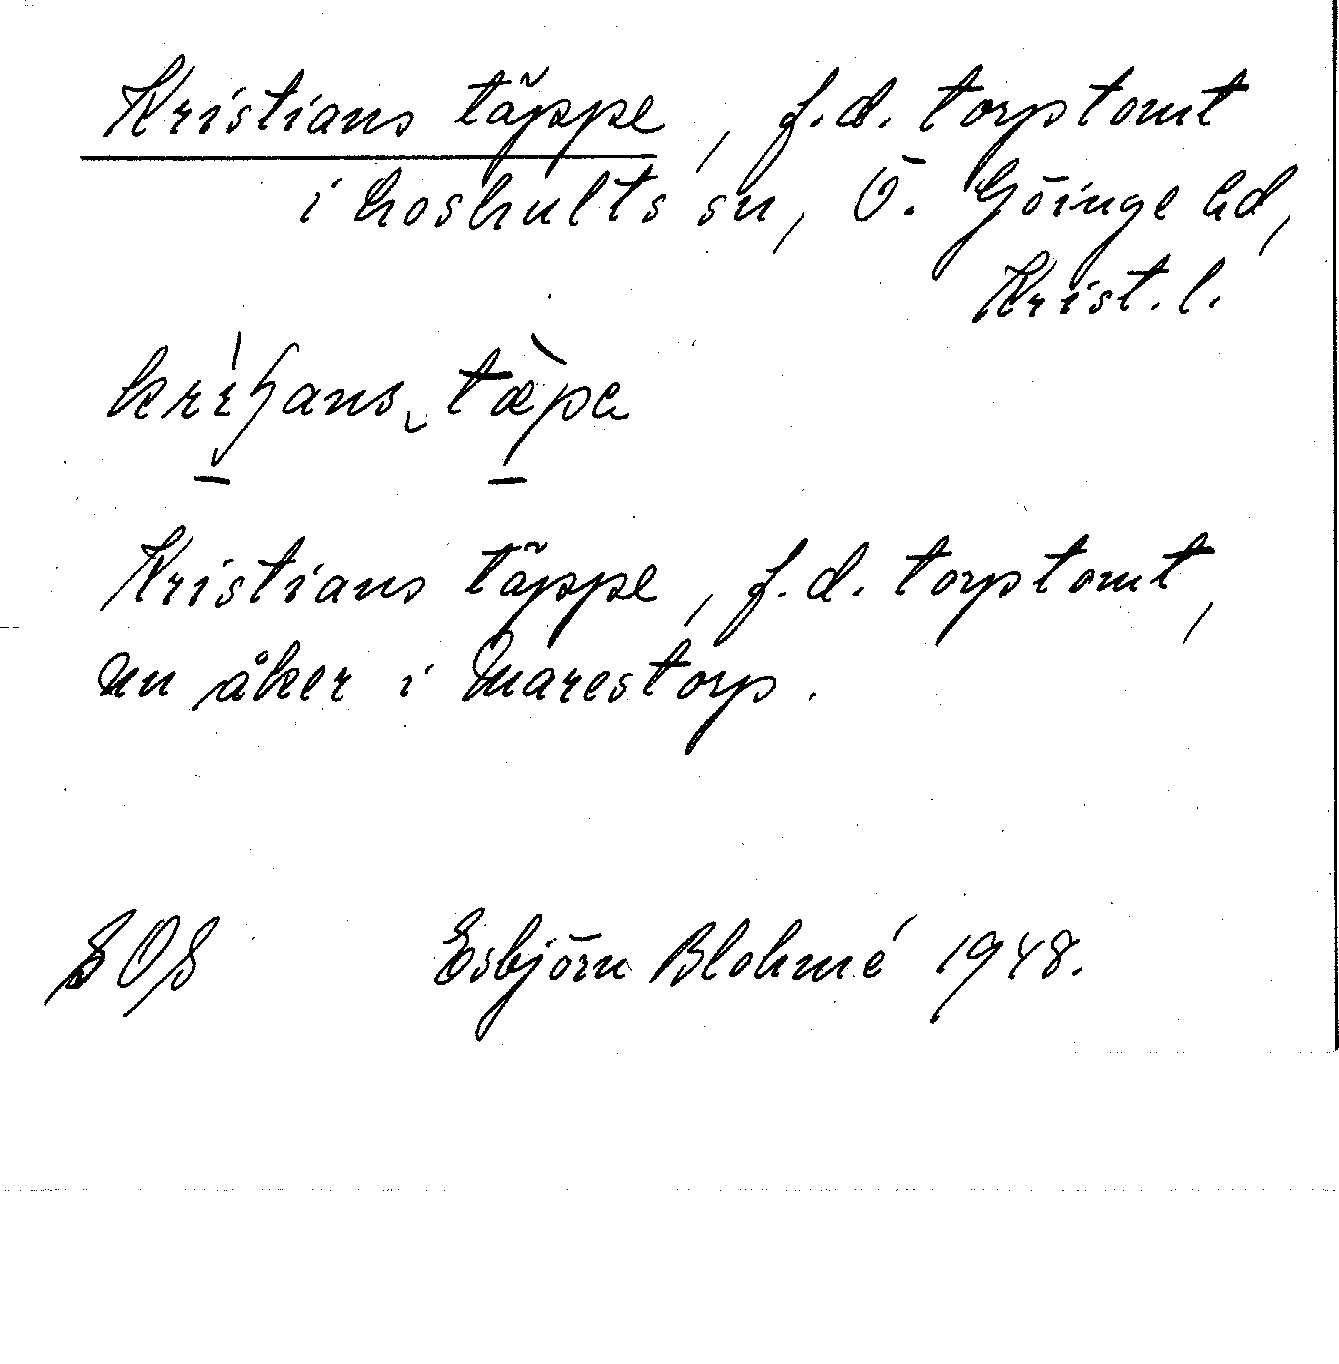 Kristians täppe, f.d. torptomt
i Loshults sn, Ö. Göinge hd,
Krist. l.
Kristians täppe, f.d. torptomt,
nu åker i Marestorp.
SOS Esbjörn Blohmé 1948.